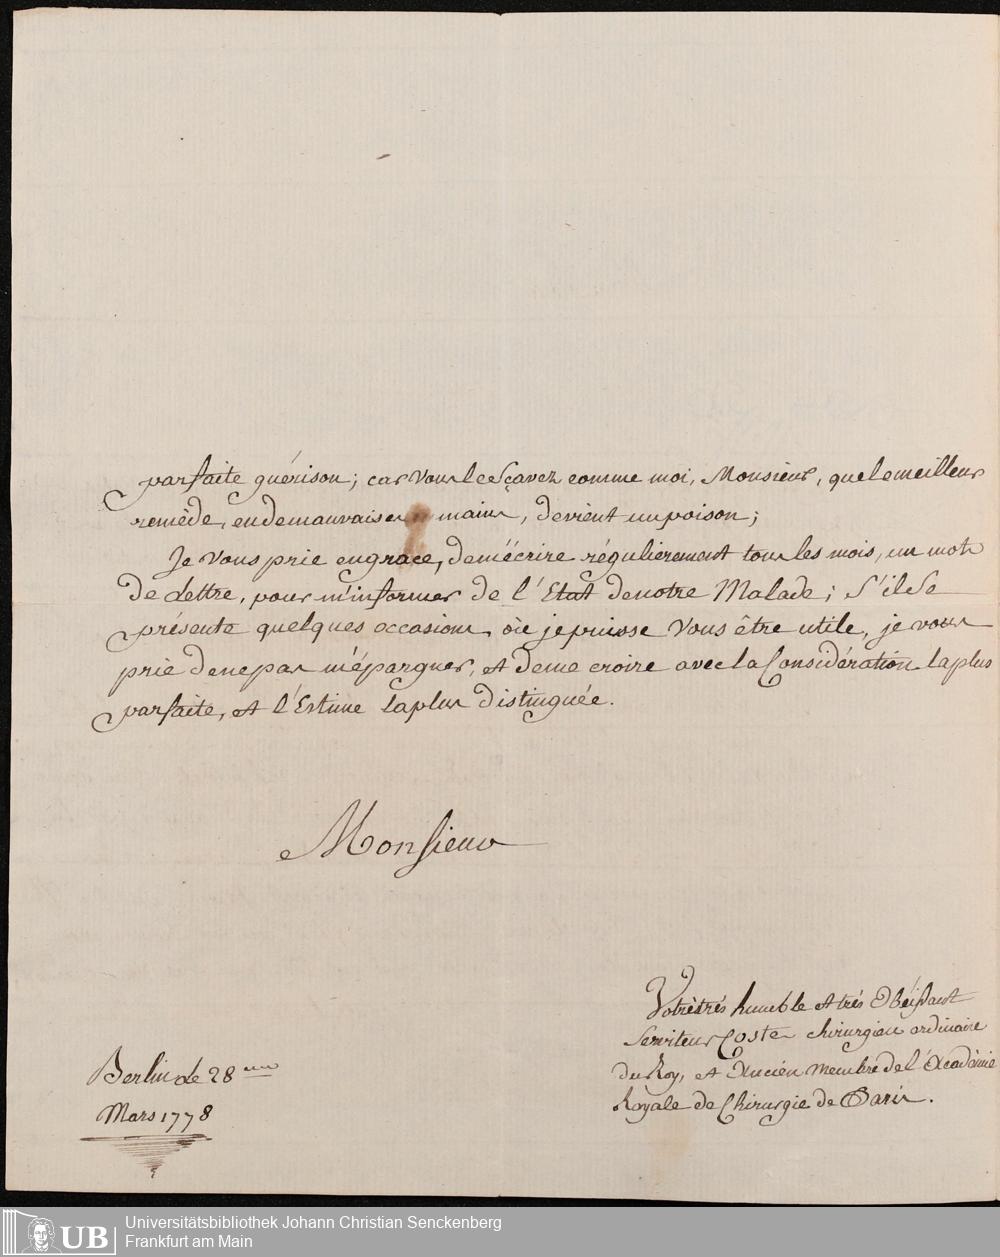 parfaite guérison; car vous le sçavez comme moi, Monsieur, que le meilleur
remède, en de mauvaises mains, devient un poison;
Je Vous prie en grace, de m'écrire régulierement tous les mois, un mot
de Lettre, pour m'informer de l'Etat de notre Malade; S'il Se
présente quelques occasions, où je puisse Vous être utile, je vous
prie de ne pas m'épargner, et de me croire avec la Considération la plus
parfaite, et l'Estime la plus distinguée.
Monsieur
Votre très humble et très Obéissant
Serviteur Coste chirurgien ordinaire
du Roy, et Ancien membre de l'Académie
Royale de Chirurgie de Paris.
Berlin de 28
Mars 1778
UB
Universitätsbibliothek Johann Christian Senckenberg
Frankfurt am Main